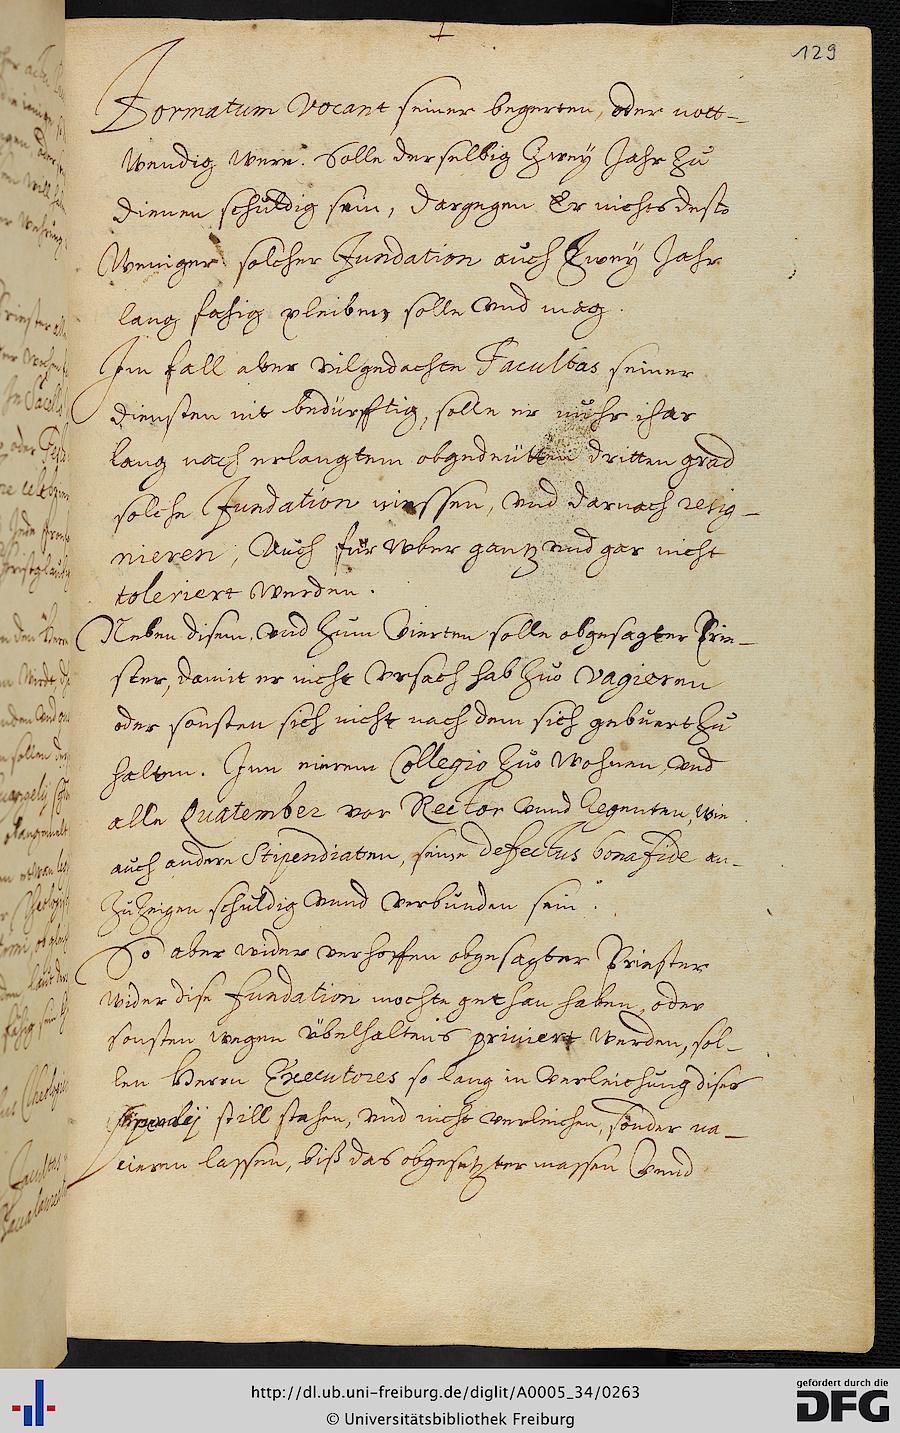 129
Formatum vocant seiner begerten, oder nott-
wendig were. Solle derselbig Zwey Jahr zu
dienen schuldig sein, dargegen Er nichts desto
Weniger solcher Fundation auch Zwey Jahr
lang fähig pleiben solle vnd mag.
Im fall aber vilgedachte Facultas seiner
diensten nit bedürfftig, solle er mehr
lang nach erlangtem obgedeütten dritten grad
solche Fundation niessen, vnd darnach resig-
nieren, Auch für vber gantz vnd gar nicht
toleriert werden.
Neben disem, vnd zum Vierten solle obgesagter Prie-
ster, damit er nicht Vrsach hab zuo vagieren
oder sonsten sich nicht nach dem sich gebuert zu
halten. Inn einem Collegio zuo wohnen, vnd
alle Quatember vor Rector vnnd Regenten, wie
auch andere Stipendiaten, seine defectus bona fide an-
zuzeigen schuldig vnnd verbunden sein.
So aber wider verhoffen obgesagter Priester
wider dise Fundation mochte gethan haben, oder
sonsten wegen übelhaltens priviert werden, sol-
len Herrn Executores so lang in verleichung dises
Stipendij still stehen, vnd nicht verleichen, sonder va-
cieren lassen, biß das obgesetzter massen vnnd
http://dl.ub.uni-freiburg.de/diglit/A0005_34/0263
© Universitätsbibliothek Freiburg
gefördert durch die
DFG